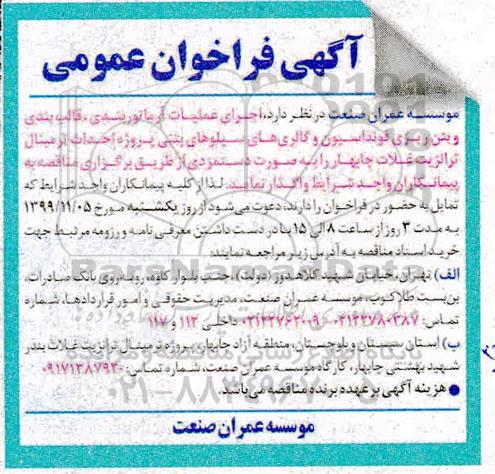 آگهی فراخوان عمومی
موسسه عمران صنعت در نظر دارد، اجرای عملیات آرماتوربندی، قالب بندی
و بتن ریزی فونداسیون و گالری های سیلوهای بتنی پروژه احداث ترمینال
ترانزیت غلات چابهار را به صورت دستمزدی از طریق برگزاری مناقصه به
پیمانکاران واجد شرایط واگذار نماید. لذا از کلیه پیمانکاران واجد شرایط که
تمایل به حضور در فراخوان را دارند، دعوت می شود از روز یکشنبه مورخ ۱۳۹۹/۱۱/۰۵
به مدت ۳ روز از ساعت ۸ الی ۱۵ با در دست داشتن معرفی نامه و رزومه مرتبط جهت
خرید اسناد مناقصه به آدرس زیر مراجعه نمایند:
الف) تهران، خیابان شهید کلاهدوز (دولت)، جنب بلوار کاوه، روبروی بانک صادرات،
بن بست طلاکوب، موسسه عمران صنعت، مدیریت حقوقی و امور قراردادها، شماره
تماس: ۰۲۱۲۲۷۸۰۳۸۷-۰۲۱۲۲۷۶۲۰۰۹ داخلی ۱۱۲ و ۱۱۷
ب) استان سیستان و بلوچستان، منطقه آزاد چابهار، پروژه ترمینال ترانزیت غلات بندر
شهید بهشتی چابهار، کارگاه موسسه عمران صنعت، شماره تماس: ۰۹۱۷۱۳۸۷۹۲۰
● هزینه آگهی بر عهده برنده مناقصه می باشد.
موسسه عمران صنعت